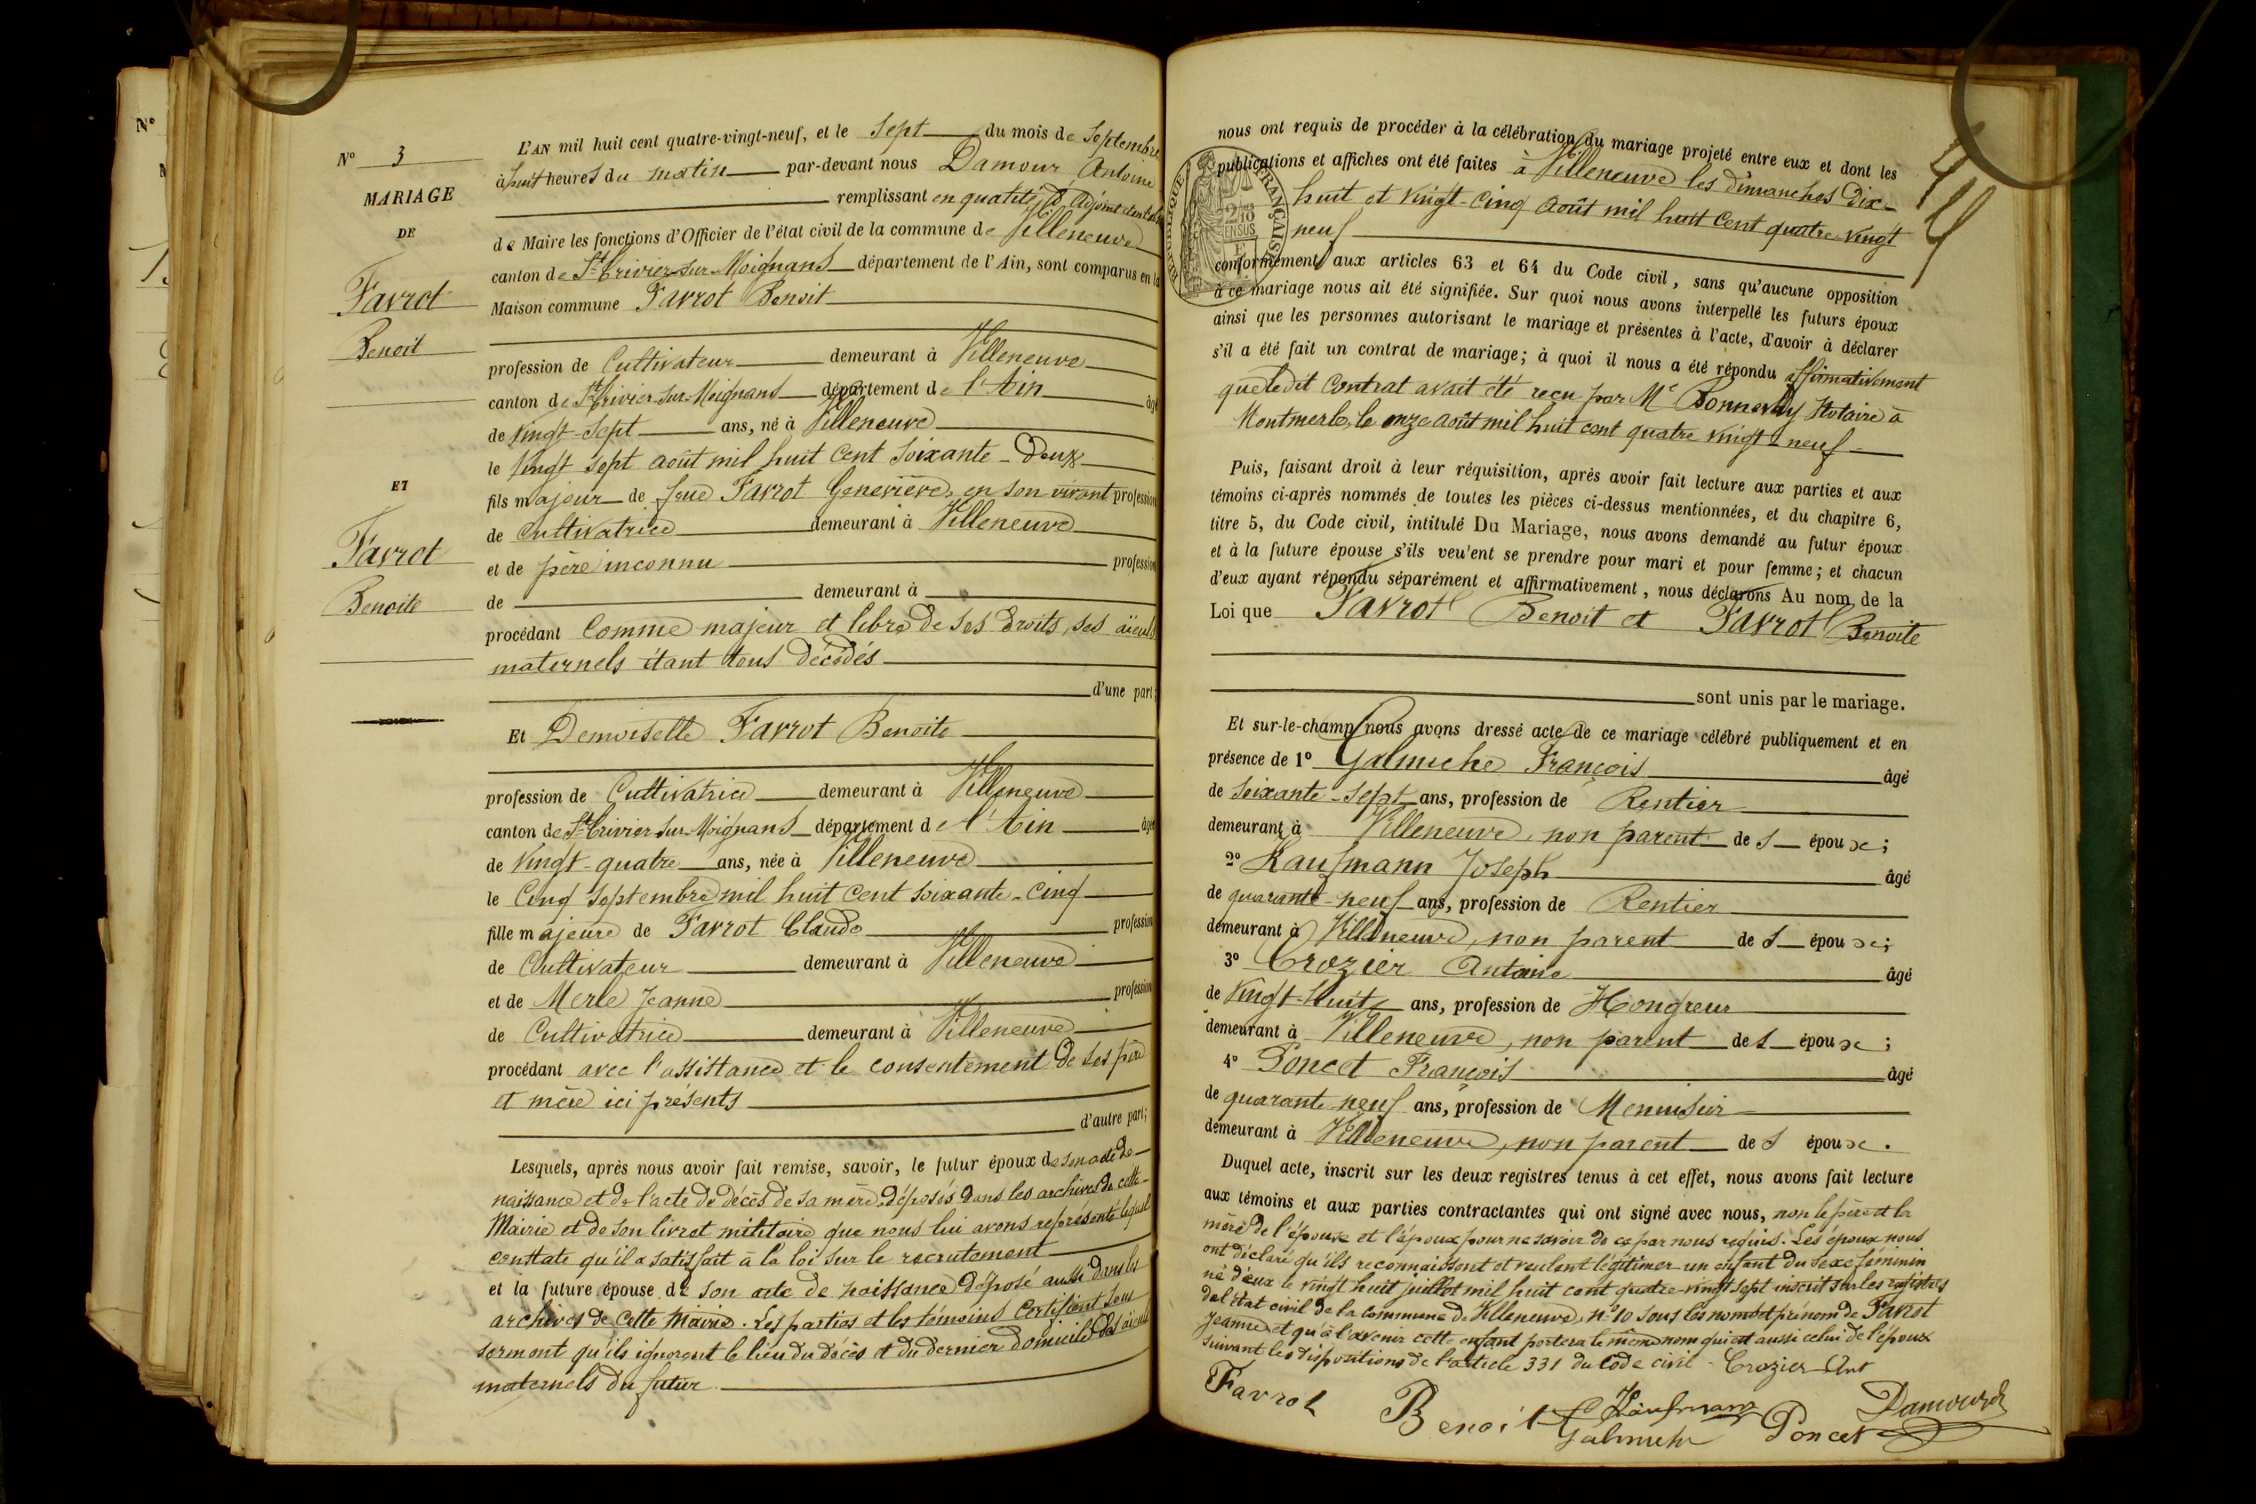 N° 3
MARIAGE
DE
Favrot
Benoit
ET
Favrot
Benoite
L'AN mil huit cent quatre-vingt-neuf, et le Sept du mois de Septembre
à huit heures du matin par-devant nous Damour Antoine
remplissant en qualité d'Adjoint
de Maire les fonctions d'Officier de l'état civil de la commune de Villeneuve
canton de St Trivier-sur-Moignans département de l'Ain, sont comparus en la
Maison commune Favrot Benoit
profession de Cultivateur demeurant à Villeneuve
canton de St Trivier-sur-Moignans département de l'Ain âgé
de Vingt-Sept ans, né à Villeneuve
le Vingt Sept août mil huit cent Soixante-Deux
fils majeur de feue Favrot Genevière, en son vivant profession
de Cultivatrice demeurant à Villeneuve
et de père inconnu profession
de demeurant à
procédant comme majeur et libre de ses droits, ses aïeuls
maternels étant tous décédés
d'une part;
Et Demoiselle Favrot Benoite
profession de Cultivatrice demeurant à Villeneuve
canton de St Trivier sur Moignans département de l'Ain âgée
de Vingt-quatre ans, née à Villeneuve
le Cinq Septembre mil huit cent soixante-cinq
fille majeure de Favrot Claude profession
de Cultivateur demeurant à Villeneuve
et de Merle Jeanne profession
de Cultivatrice demeurant à Villeneuve
procédant avec l'assistance et le consentement de ses père
et mère ici présents
d'autre part;
Lesquels, après nous avoir fait remise, savoir, le futur époux de son acte de
naissance et de l'acte de décès de sa mère, déposés dans les archives de cette
Mairie et de son livret militaire que nous lui avons représenté lequel
constate qu'il a satisfait à la loi sur le recrutement
et la future épouse de son acte de naissance déposé aussi dans les
archives de cette Mairie. Les parties et les témoins certifient sous
serment qu'ils ignorent le lieu du décès et du dernier domicile des aïeuls
maternels du futur
nous ont requis de procéder à la célébration du mariage projeté entre eux et dont les
publications et affiches ont été faites à Villeneuve les dimanches Dix-
huit et Vingt-Cinq Août mil huit cent quatre-vingt
neuf
conformément aux articles 63 et 64 du Code civil, sans qu'aucune opposition
à ce mariage nous ait été signifiée. Sur quoi nous avons interpellé les futurs époux
ainsi que les personnes autorisant le mariage et présentes à l'acte, d'avoir à déclarer
s'il a été fait un contrat de mariage; à quoi il nous a été répondu affirmativement
que ledit contrat avait été reçu par Me Bonnevay Notaire à
Montmerle, le onze août mil huit cent quatre vingt-neuf
Puis, faisant droit à leur réquisition, après avoir fait lecture aux parties et aux
témoins ci-après nommés de toutes les pièces ci-dessus mentionnées, et du chapitre 6,
titre 5, du Code civil, intitulé Du Mariage, nous avons demandé au futur époux
et à la future épouse s'ils veulent se prendre pour mari et pour femme; et chacun
d'eux ayant répondu séparément et affirmativement, nous déclarons Au nom de la
Loi que Favrot Benoit et Favrot Benoite
sont unis par le mariage.
Et sur-le-champ nous avons dressé acte de ce mariage célébré publiquement et en
présence de 1° Galmiche François âgé
de Soixante-sept ans, profession de Rentier
demeurant à Villeneuve, non parent de s époux;
2° Kaufmann Joseph âgé
de quarante-neuf ans, profession de Rentier
demeurant à Villeneuve, non parent de s époux;
3° Crozier Antoine âgé
de Vingt-huit ans, profession de Hongreur
demeurant à Villeneuve, non parent de s époux;
4° Poncet François âgé
de quarante neuf ans, profession de Menuisier
demeurant à Villeneuve, non parent de s époux.
Duquel acte, inscrit sur les deux registres tenus à cet effet, nous avons fait lecture
aux témoins et aux parties contractantes qui ont signé avec nous, non le père et la
mère de l'épouse et l'épouse pour ne savoir de ce par nous requis. Les époux nous
ont déclaré qu'ils reconnaissent et veulent légitimer un enfant du sexe féminin
né d'eux le vingt huit juillet mil huit cent quatre-vingt sept inscrit sur les registres
de l'état civil de la commune de Villeneuve, n° 10 sous les nom et prénom de Favrot
Jeanne et qu'à l'avenir cette enfant portera le même nom qui est aussi celui de l'époux
suivant les dispositions de l'article 331 du Code civil - Crozier Ant
Favrot Benoit Kaufmann Damour
Galmiche Poncet